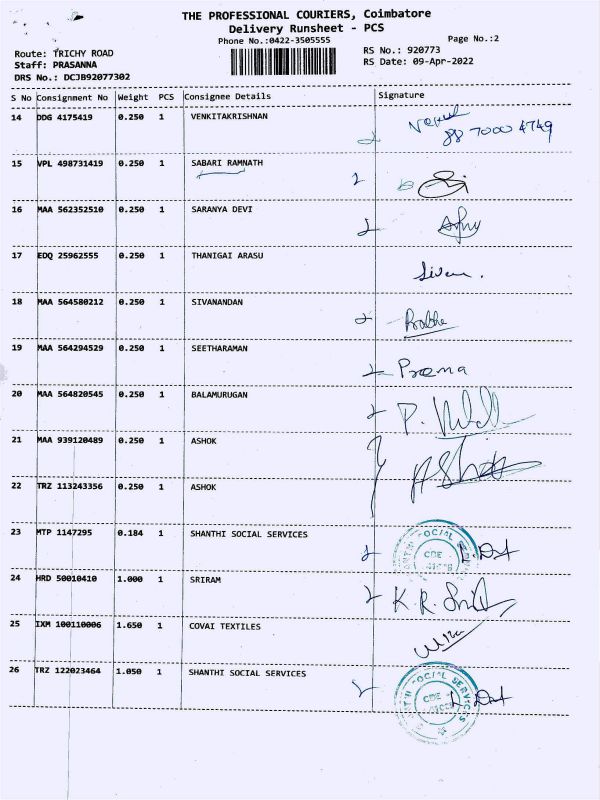 THE PROFESSIONAL COURIERS, Coimbatore
Delivery Runsheet - PCS
Phone No.:0422-3505555 Page No.:2
Route: TRICHY ROAD RS No.: 920773
Staff: PRASANNA RS Date: 09-Apr-2022
DRS No.: DCJB92077302
S No Consignment No Weight PCS Consignee Details Signature
14 DDG 4175419 0.250 1 VENKITAKRISHNAN
88 7000 4749
15 VPL 498731419 0.250 1 SABARI RAMNATH
16 MAA 562352510 0.250 1 SARANYA DEVI
17 EDQ 25962555 0.250 1 THANIGAI ARASU
18 MAA 564580212 0.250 1 SIVANANDAN
19 MAA 564294529 0.250 1 SEETHARAMAN Prema
20 MAA 564820545 0.250 1 BALAMURUGAN
21 MAA 939120489 0.250 1 ASHOK
22 TRZ 113243356 0.250 1 ASHOK
23 MTP 1147295 0.184 1 SHANTHI SOCIAL SERVICES
24 HRD 50010410 1.000 1 SRIRAM K.R.
25 IXM 100110006 1.650 1 COVAI TEXTILES
26 TRZ 122023464 1.050 1 SHANTHI SOCIAL SERVICES